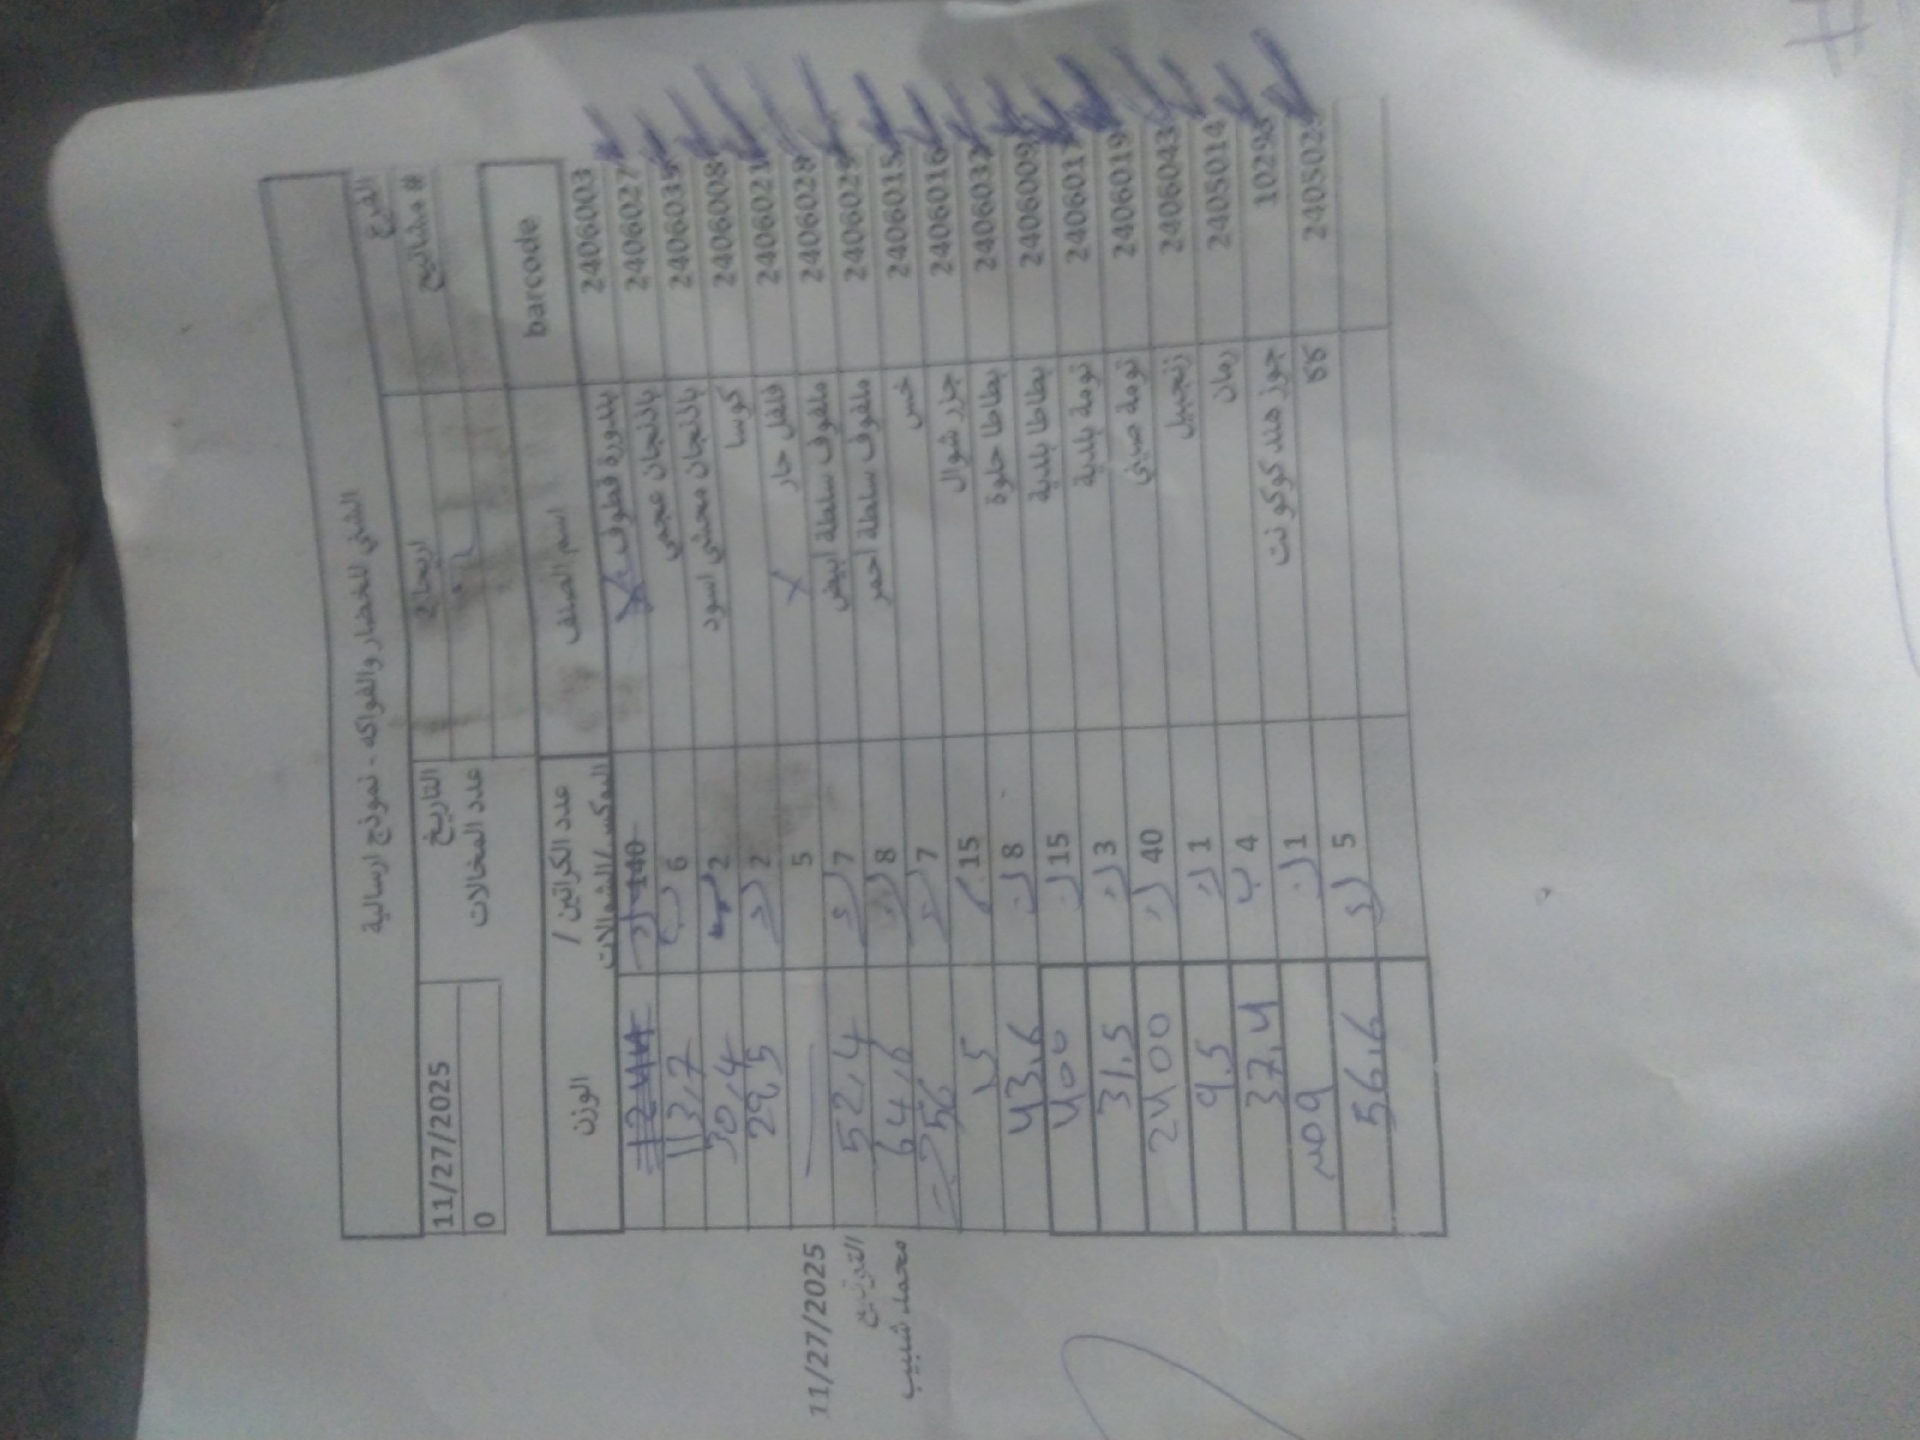 الشني للخضار والفواكه - نموذج ارسالية
الفرع اريحا 2 التاريخ 11/27/2025
# مشاتيح عدد المخالات 0
barcode اسم الصنف عدد الكراتين / البوكس / الشوالات الوزن
2406003 بندورة قطوف 140
2406027 باذنجان عجمي 6 113,7
2406035 باذنجان محشي اسود 2 30,4
2406008 كوسا 2 29,5
2406021 فلفل حار 5
2406028 ملفوف سلطة ابيض 7 52,4
2406029 ملفوف سلطة احمر 8 64,6
2406015 خس 7 56
2406016 جزر شوال 15
2406032 بطاطا حلوة 8 43.6
2406009 بطاطا بلدية 15 400
2406017 تومة بلدية 3 31.5
2406019 تومة صيني 40 2400
2406043 زنجبيل 1 9.5
2405014 رمان 4 37.4
جوز هند كوكو نت 1
كاكا 5 56.6
11/27/2025
التوزيع
محمد شبيب